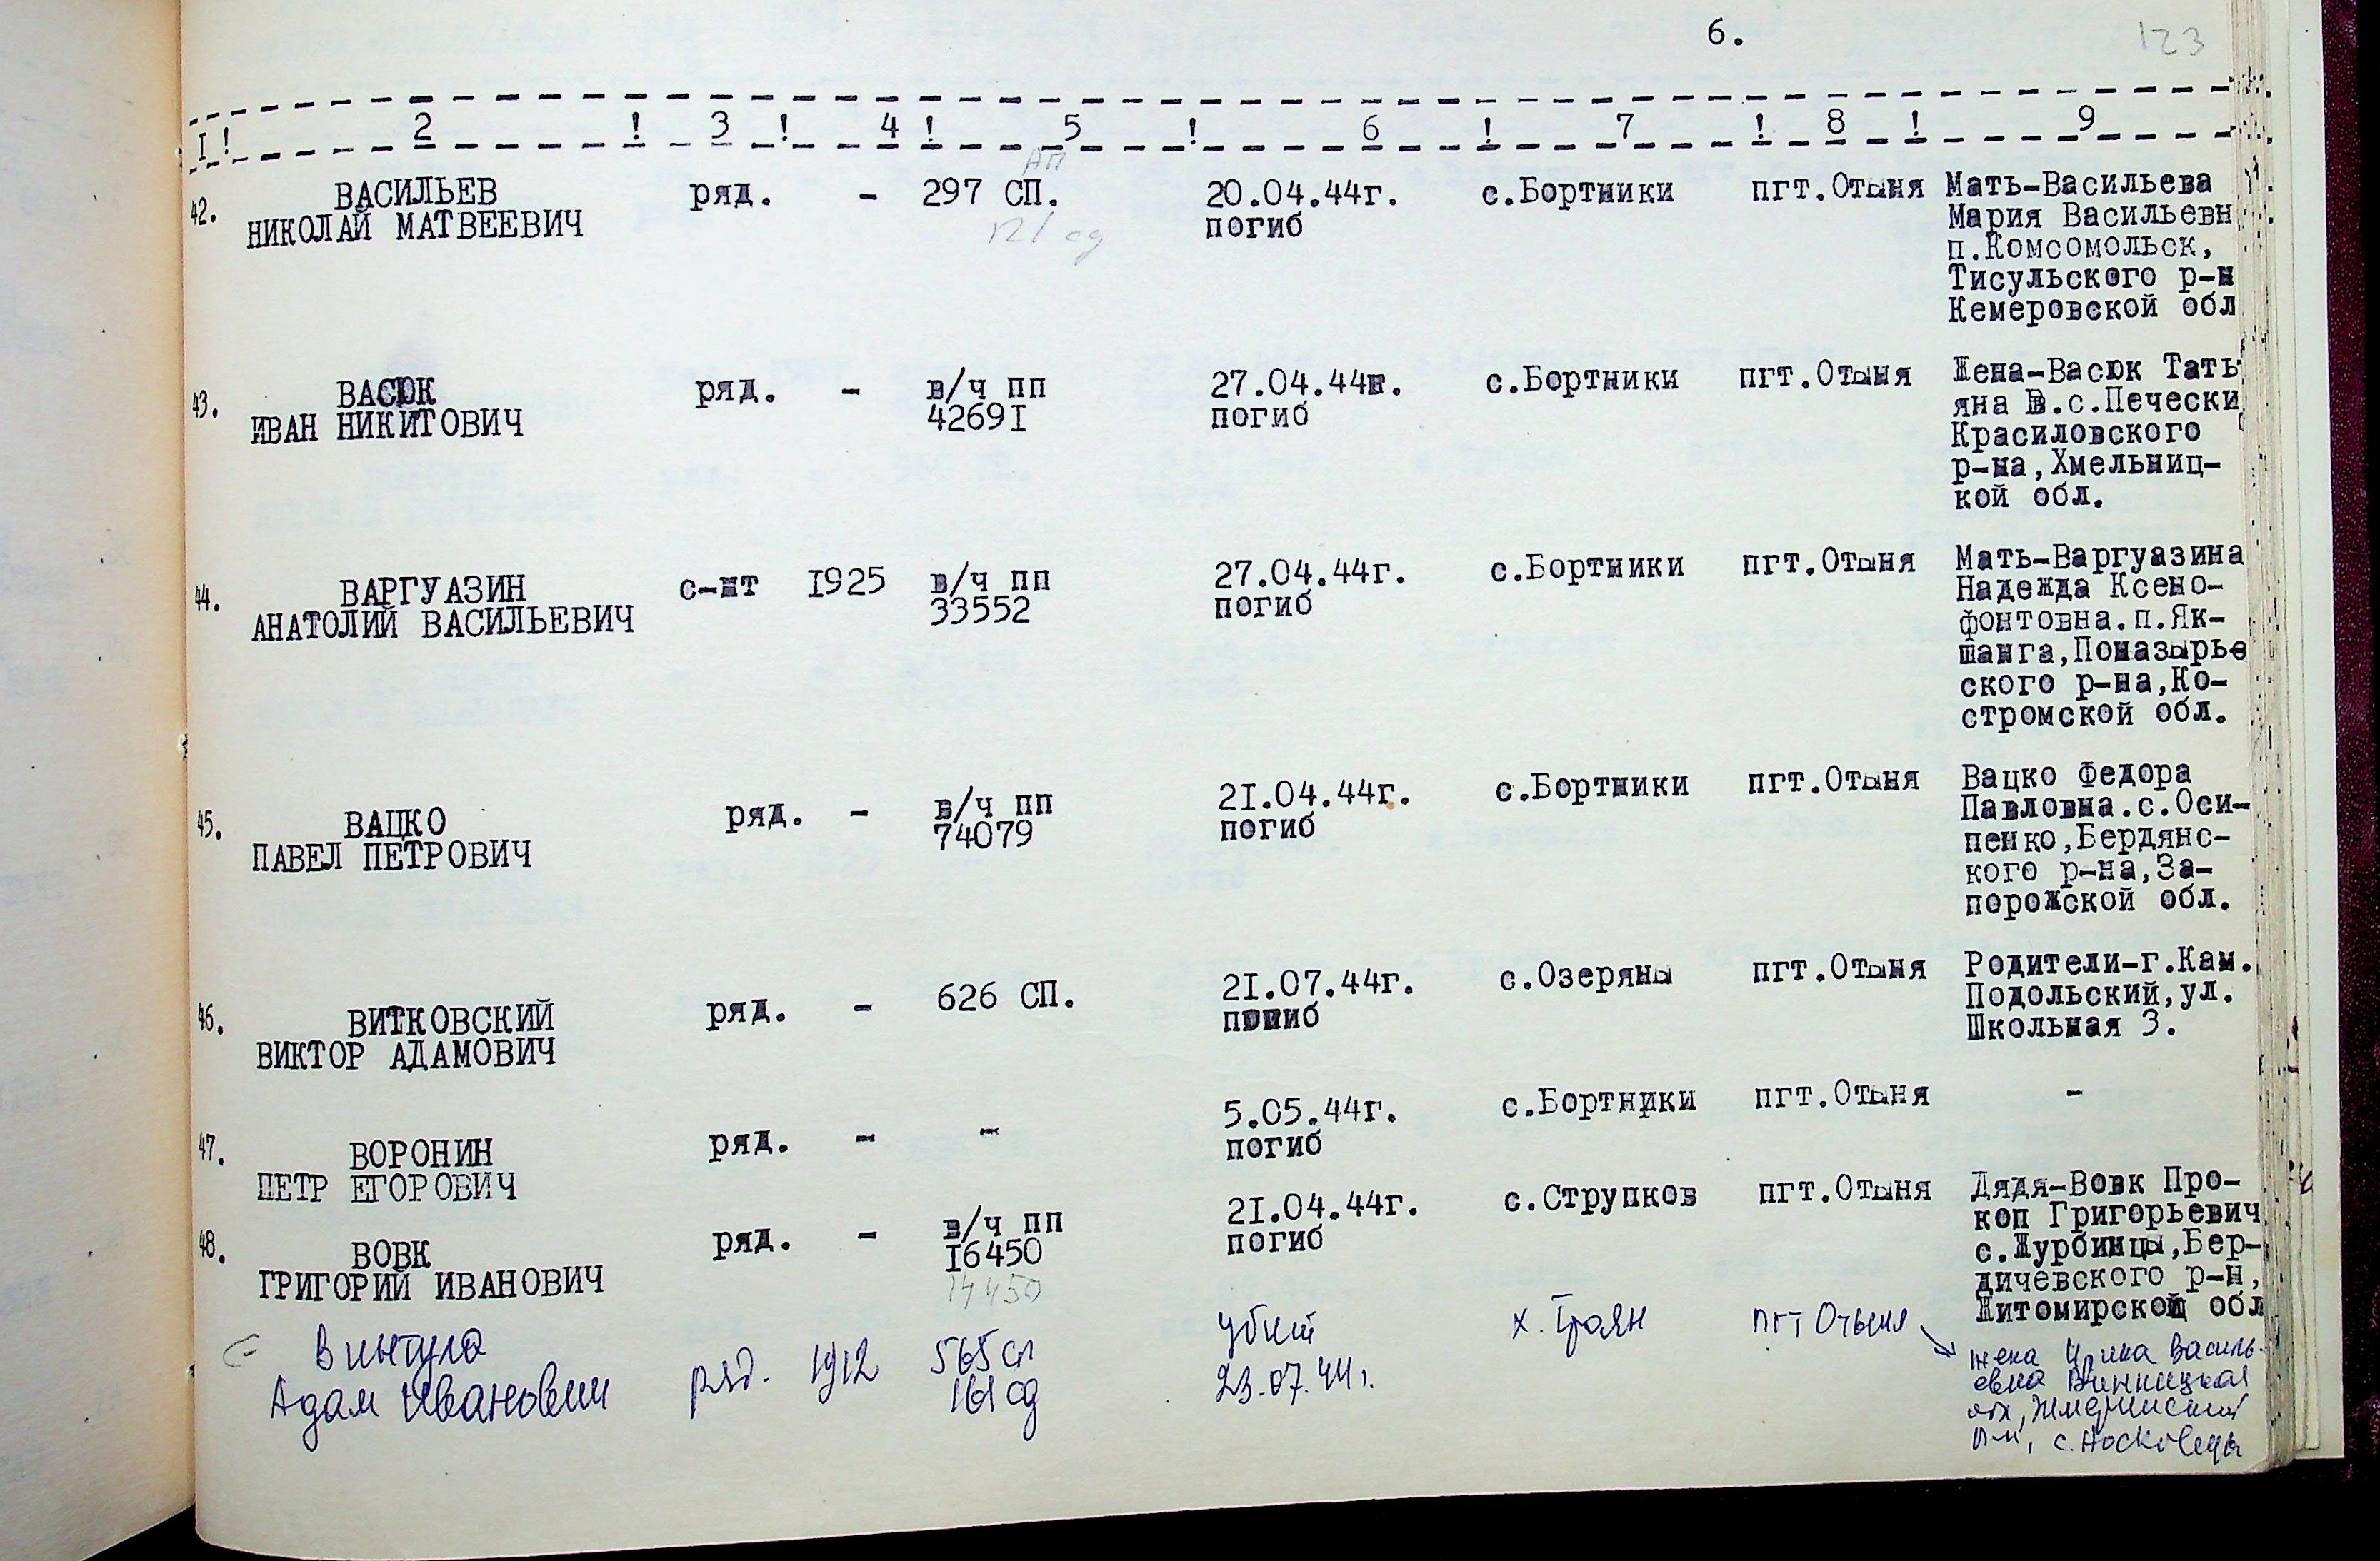 6.
123
I ! 2 ! 3 ! 4 ! 5 ! 6 ! 7 ! 8 ! 9
АП
42. ВАСИЛЬЕВ ряд. - 297 СП. 20.04.44г. с.Бортники пгт.Отыня Мать-Васильева
НИКОЛАЙ МАТВЕЕВИЧ 121 сд погиб Мария Васильевн
п.Комсомольск,
Тисульского р-н
Кемеровской обл
43. ВАСЮК ряд. - в/ч пп 27.04.44г. с.Бортники пгт.Отыня Жена-Васюк Тать
ИВАН НИКИТОВИЧ 4269I погиб яна В.с.Печески
Красиловского
р-на,Хмельниц-
кой обл.
44. ВАРГУАЗИН с-нт I925 в/ч пп 27.04.44г. с.Бортники пгт.Отыня Мать-Варгуазина
АНАТОЛИЙ ВАСИЛЬЕВИЧ 33552 погиб Надежда Ксено-
фонтовна.п.Як-
шанга,Поназырье
ского р-на,Ко-
стромской обл.
45. ВАЦКО ряд. - в/ч пп 2I.04.44г. с.Бортники пгт.Отыня Вацко Федора
ПАВЕЛ ПЕТРОВИЧ 74079 погиб Павловна.с.Оси-
пенко,Бердянс-
кого р-на,За-
порожской обл.
46. ВИТКОВСКИЙ ряд. - 626 СП. 2I.07.44г. с.Озеряны пгт.Отыня Родители-г.Кам.
ВИКТОР АДАМОВИЧ погиб Подольский,ул.
Школьная 3.
47. ВОРОНИН ряд. - - 5.05.44г. с.Бортники пгт.Отыня -
ПЕТР ЕГОРОВИЧ погиб
48. ВОВК ряд. - в/ч пп 2I.04.44г. с.Струпков пгт.Отыня Дядя-Вовк Про-
ГРИГОРИЙ ИВАНОВИЧ I6450 погиб коп Григорьевич
14450 с.Журбинцы,Бер-
дичевского р-н,
Житомирской обл
Винтула ряд. 1912 565 сп убит х. Троян пгт Отыня жена Ирина Василь-
Адам Иванович 161 сд 23.07.44г. евна Винницкая
обл, Жмеринский
р-н, с. Носковцы